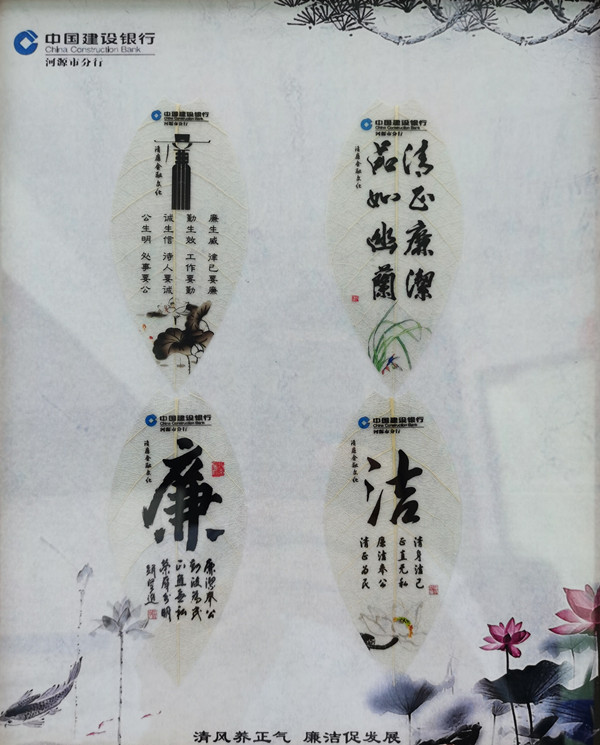 中国建设银行
China Construction Bank
河源市分行
中国建设银行
China Construction Bank
河源市分行
清廉金融文化
廉生威 律己要廉
勤生效 工作要勤
诚生信 待人要诚
公生明 处事要公
中国建设银行
China Construction Bank
河源市分行
清廉金融文化
清正廉潔
品如幽蘭
中国建设银行
China Construction Bank
河源市分行
清廉金融文化
廉
廉潔奉公
勤政為民
正直無私
榮辱分明
中国建设银行
China Construction Bank
河源市分行
清廉金融文化
洁
清身洁己
正直无私
廉洁奉公
清正为民
清风养正气 廉洁促发展